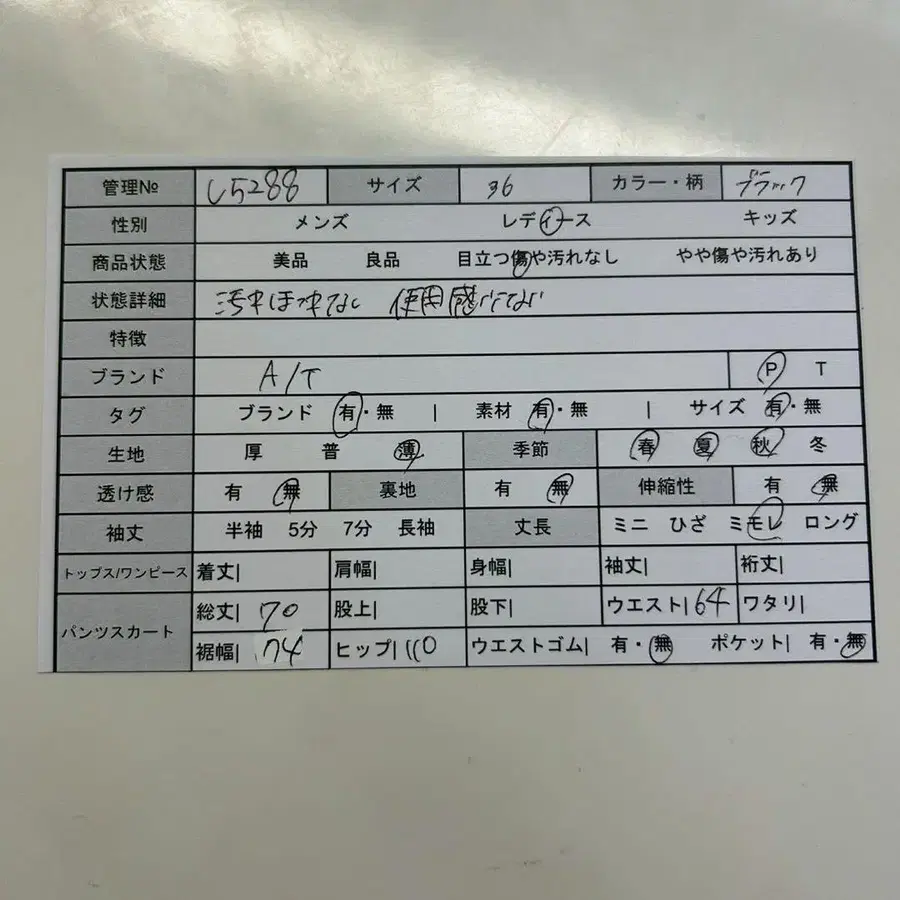 管理№ U5288 サイズ 36 カラー・柄 ブラック
性別 メンズ レディース キッズ
商品状態 美品 良品 目立つ傷や汚れなし やや傷や汚れあり
状態詳細 汚れほつれなし 使用感
特徴
ブランド A/T P T
タグ ブランド 有・無 | 素材 有・無 | サイズ 有・無
生地 厚 普 薄 季節 春 夏 秋 冬
透け感 有 無 裏地 有 無 伸縮性 有 無
袖丈 半袖 5分 7分 長袖 丈長 ミニ ひざ ミモレ ロング
トップス/ワンピース 着丈| 肩幅| 身幅| 袖丈| 裄丈|
パンツスカート 総丈| 70 股上| 股下| ウエスト| 64 ワタリ|
裾幅| 74 ヒップ| 110 ウエストゴム| 有・無 ポケット| 有・無